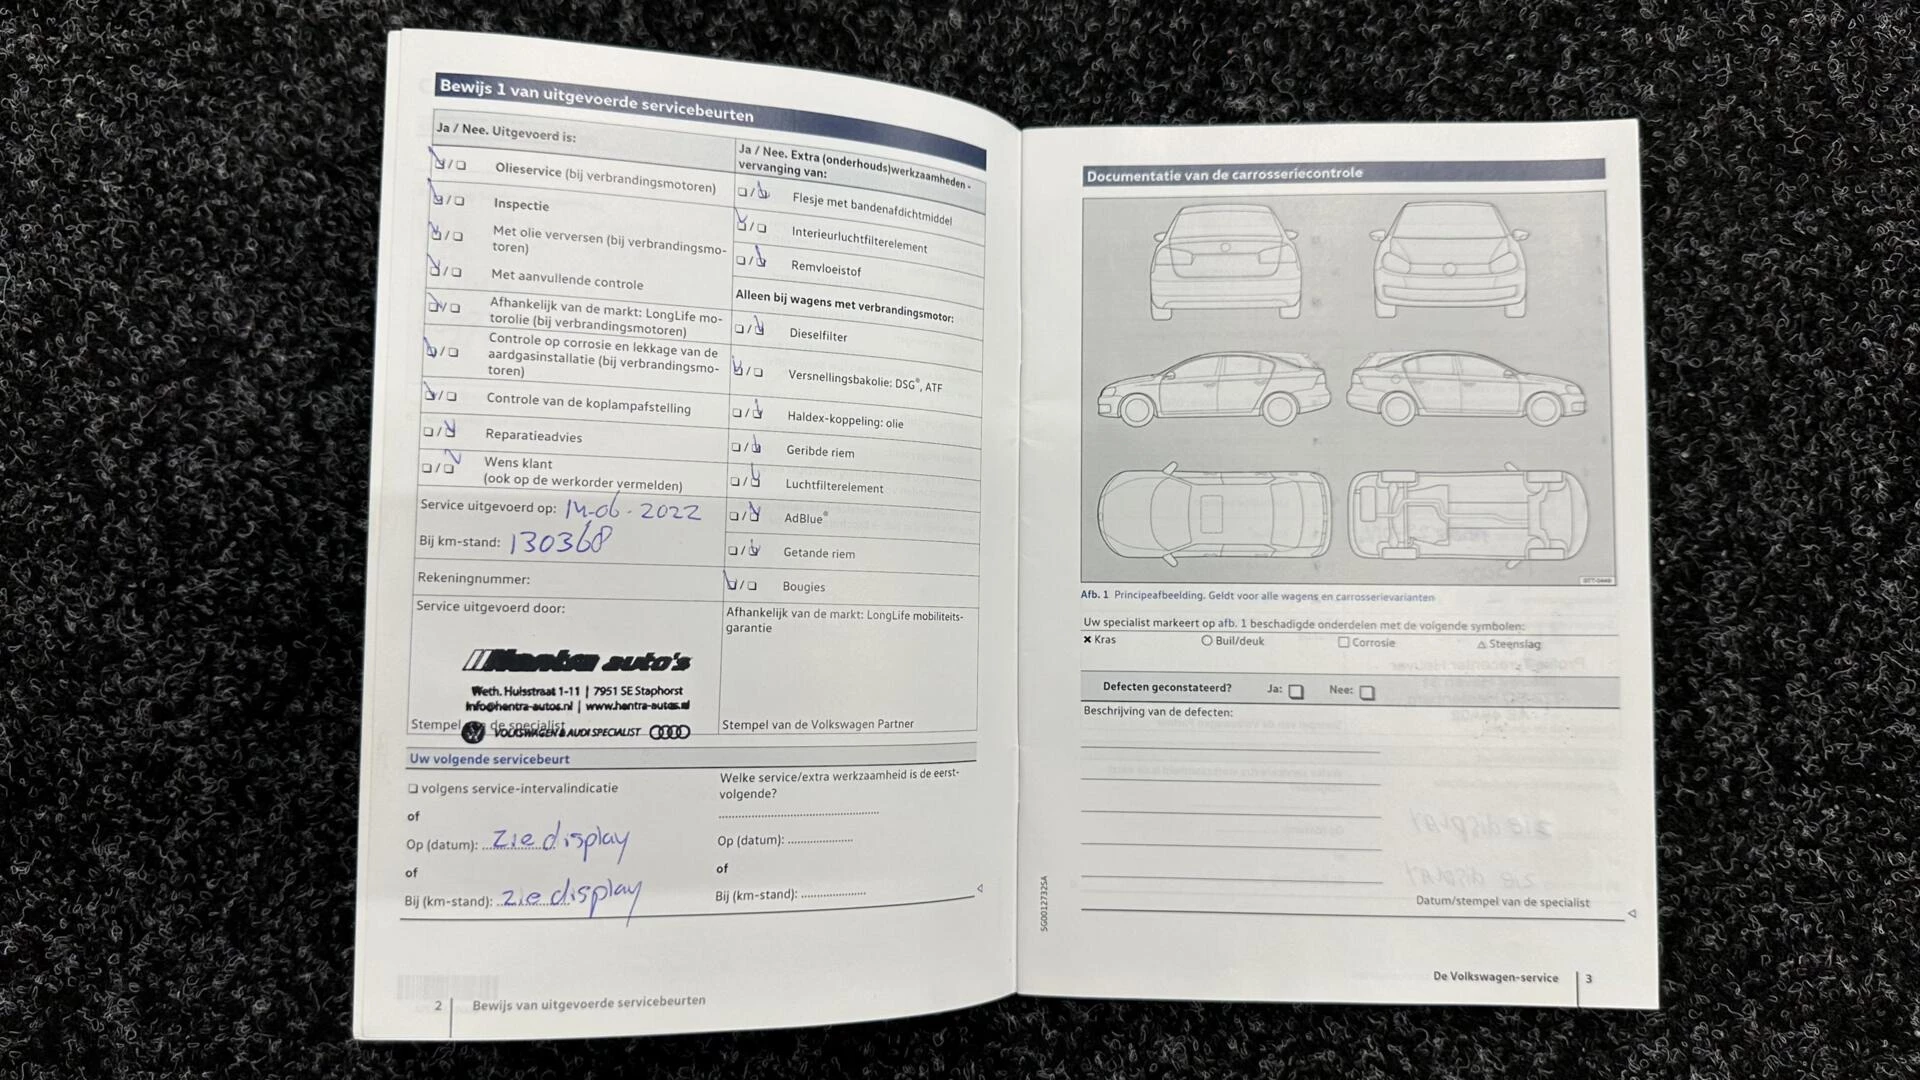 Bewijs 1 van uitgevoerde servicebeurten
Ja / Nee. Uitgevoerd is:
Olieservice (bij verbrandingsmotoren)
Inspectie
Met olie verversen (bij verbrandingsmo-
toren)
Met aanvullende controle
Afhankelijk van de markt: LongLife mo-
torolie (bij verbrandingsmotoren)
Controle op corrosie en lekkage van de
aardgasinstallatie (bij verbrandingsmo-
toren)
Controle van de koplampafstelling
Reparatieadvies
Wens klant
(ook op de werkorder vermelden)
Service uitgevoerd op: 14-06-2022
Bij km-stand: 130368
Rekeningnummer:
Service uitgevoerd door:
Hentra auto's
Weth. Hulsstraat 1-11 | 7951 SE Staphorst
info@hentra-autos.nl | www.hentra-autos.nl
Stempel van de specialist
VOLKSWAGEN & AUDI SPECIALIST
Ja / Nee. Extra (onderhouds)werkzaamheden -
vervanging van:
Flesje met bandenafdichtmiddel
Interieurluchtfilterelement
Remvloeistof
Alleen bij wagens met verbrandingsmotor:
Dieselfilter
Versnellingsbakolie: DSG®, ATF
Haldex-koppeling: olie
Geribde riem
Luchtfilterelement
AdBlue®
Getande riem
Bougies
Afhankelijk van de markt: LongLife mobiliteits-
garantie
Stempel van de Volkswagen Partner
Uw volgende servicebeurt
volgens service-intervalindicatie
of
Op (datum): zie display
of
Bij (km-stand): zie display
Welke service/extra werkzaamheid is de eerst-
volgende?
Op (datum):
of
Bij (km-stand):
2 | Bewijs van uitgevoerde servicebeurten
Documentatie van de carrosseriecontrole
Afb. 1 Principeafbeelding. Geldt voor alle wagens en carrosserievarianten
Uw specialist markeert op afb. 1 beschadigde onderdelen met de volgende symbolen:
Kras Buil/deuk Corrosie Steenslag
Defecten geconstateerd? Ja: Nee:
Beschrijving van de defecten:
Datum/stempel van de specialist
5G0012732SA
De Volkswagen-service | 3